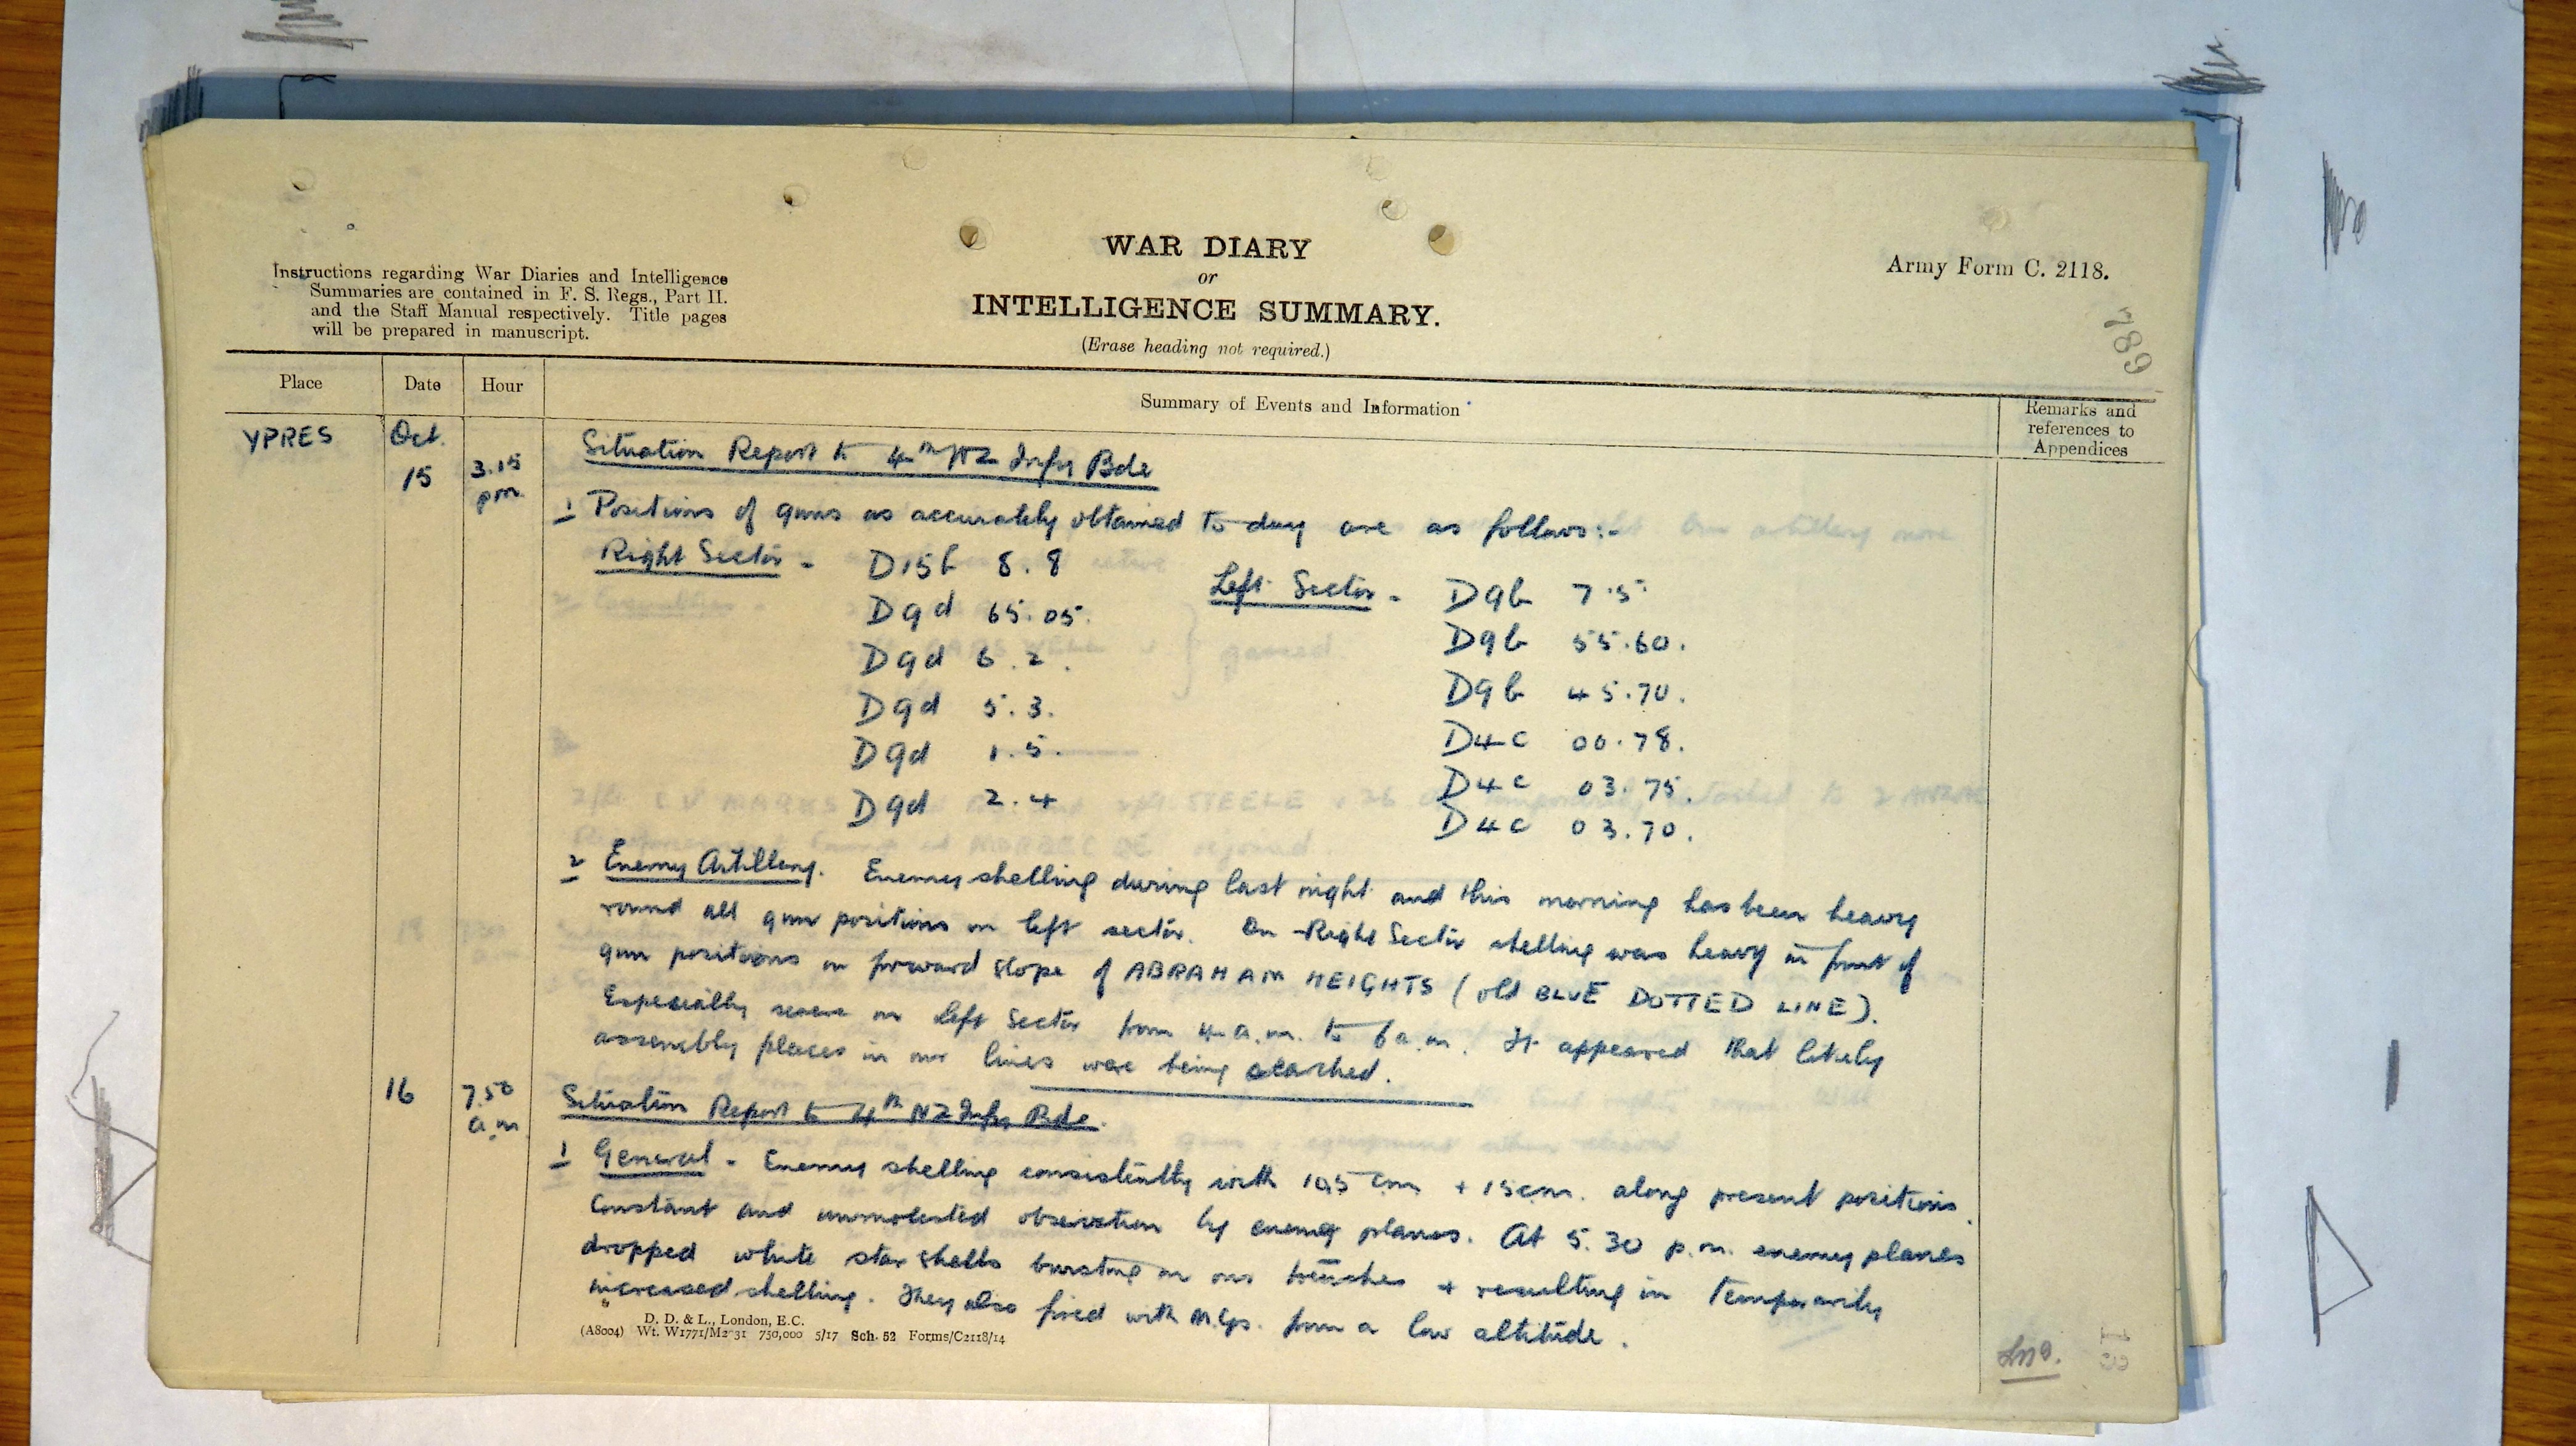 WAR DIARY
or
INTELLIGENCE SUMMARY.
(Erase heading not required.)
Army Form C. 2118.
789
Instructions regarding War Diaries and Intelligence
Summaries are contained in F. S. Regs., Part II.
and the Staff Manual respectively. Title pages
will be prepared in manuscript.
Place Date Hour Summary of Events and Information
Remarks and
references to
Appendices
YPRES Oct.
15 3.15
pm
Situation Report to 4th NZ Infy Bde
1 Positions of guns as accurately obtained to day are as follows:-
Right Sector - D15b 8.8
D9d 65.05.
D9d 6.2.
D9d 5.3.
D9d 1.5.
D9d 2.4
Left Sector - D9b 7.5
D9b 55.60.
D9b 45.70.
D4c 00.78.
D4c 03.75.
D4c 03.70.
2 Enemy Artillery. Enemy shelling during last night and this morning has been heavy
round all gun positions on left sector. On Right Sector shelling was heavy in front of
gun positions on forward slope of ABRAHAM HEIGHTS (old BLUE DOTTED LINE).
Especially severe on left Sector from 4 a.m. to 6 a.m. It appeared that likely
assembly places in our lines were being searched.
16 7.50
a.m
Situation Report to 4th NZ Infy Bde.
1 General - Enemy shelling consistently with 10.5 cm + 15 cm. along present positions.
Constant and unmolested observation by enemy planes. At 5.30 p.m. enemy planes
dropped white star shells bursting on our trenches + resulting in temporarily
increased shelling. They also fired with M.Gs. from a low altitude.
D. D. & L., London, E.C.
(A8004) Wt. W1771/M2031 750,000 5/17 Sch. 52 Forms/C2118/14
13